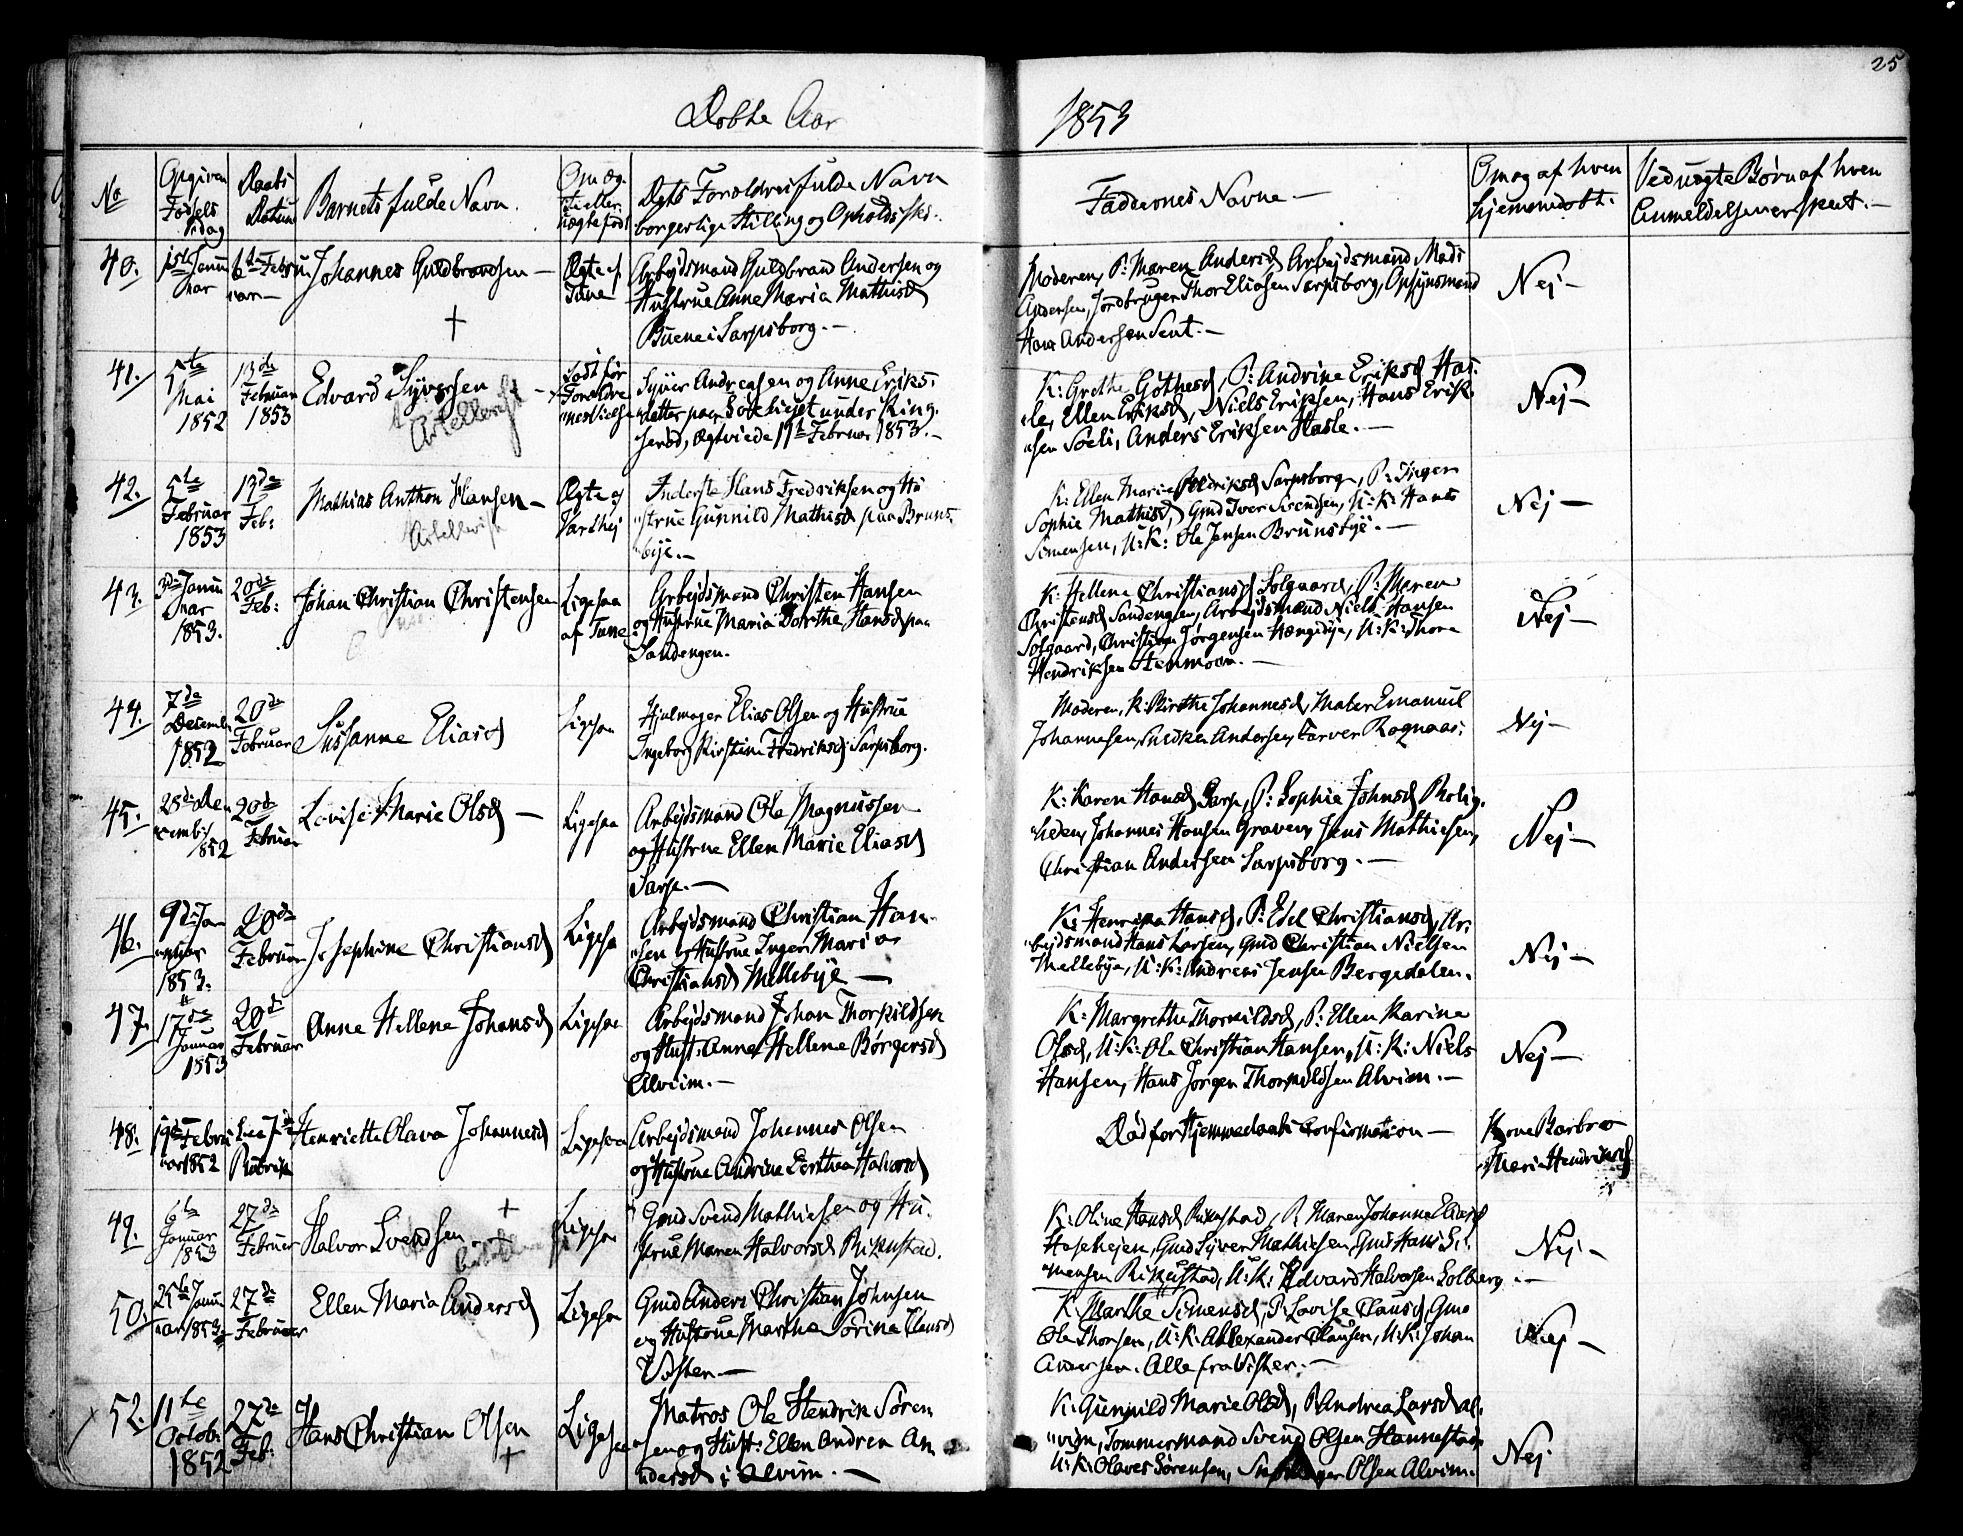 25
Døbte Aar 1853
No
Opgiven Fødsels dag
Daabs Datum
Barnets fulde Navn.
Om ægte eller uægte født
Dets Forældres fulde Navn
borgerlige Stilling og Opholdssted.
Faddernes Navne —
Om og af hvem
hjemmedøbt.
Ved uægte Børn af hvem
Anmeldelsen er skeet. —
40. 1ste Januar
6te Februar —
Johannes Guldbrandsen —
+
Ægte af
Tune
Arbejdsmand Guldbrand Andersen og
Hustrue Anne Maria Mathisd
Buene i Sarpsborg. —
Moderen, P: Maren Andersd Arbejdsmand Mads
Andersen, Jordbruger Thor Eliasen Sarpsborg, Opsynsmand
Hans Andersen Sent. —
Nej —
41. 5te
Mai
1852
13de
Februar
1853
Edvard Syversen —
Født før
Forældrenes
Syver Andreasen og Anne Eriks-
datter paa under Ring-
serød, ægtviede 11te Februar 1853. —
K: Grethe Gothesd, P: Andrine Eriksd Has-
le, Ellen Eriksd, Niels Eriksen, Hans Erik-
sen Soeli, Anders Eriksen Hasle. —
Nej —
42. 5te
Februar
1853
13de
Feb:
Mathias Anthon Hansen —
Ægte og
Inderste Hans Fredriksen og Hu-
strue Gunnild Mathisd paa Bruns-
bye. —
K: Ellen Marie Sarpsborg, P: Inger
Sophie Mathisd, Gmd Iver Svendsen, U: K: Hans
Simensen, U: K: Ole Jensen Brunsbye. —
Nej —
43. 3de Januar
1853.
20de
Feb:
Johan Christian Christensen
Ligesaa
af Tune
Arbejdsmand Christen Hansen
og Hustrue Maria Dorthe Hansd paa
Sandengen.
K: Hellene Christiansd Solgaard, P: Maren
Christensd Sandengen, Arbejdsmand Niels Hansen
Solgaard, Christian Jørgensen Hængslye, U: K: Thore
Hendriksen Henmoen. —
Nej —
44. 7de
Decemb
1852
20de
Februar
Susanne Eliasd
Ligesaa
Hjulmager Elias Olsen og Hustrue
Ingeborg Kirstine Fredriksd Sarpsborg.
Moderen, K: Birthe Johannesd, Maler Emanuel
Johannesen, Snedker Andersen, Farver Rognaas.
Nej —
45. 28de Decemb: 1852
20de
Februar
Lovise Marie Olsd —
Ligesaa
Arbejdsmand Ole Magnussen
og Hustrue Ellen Marie Eliasd
Sarpe. —
K: Karen Hansd Sarp, P: Sophie Johnsd Rolig-
heden, Johannes Hansen Graven, Jens Mathiesen,
Christian Andersen Sarpsborg. —
Nej —
46. 9de Januar
1853.
20de
Februar
Josephine Christiansd
Ligesaa
Arbejdsmand Christian Han-
sen og Hustrue Inger Maria
Christiansd Mellebye —
K: Henrika Hansd, P: Edel Christiansd, Ar-
bejdsmand Hans Larsen, Gmd Christian Nielsen
Mellebye, U: K: Andreas Jensen Bergedalen.
Nej —
47. 17de
Januar
1853
20de
Februar
Anne Hellene Johansd
Ligesaa
Arbejdsmand Johan Thorkildsen
og Hust: Anne Hellene Børgersd
Alvim. —
K: Margrethe Thorkildsd, P: Ellen Karine
Olsd, U: K: Ole Christian Hansen, U: K: Niels
Hansen, Hans Jørgen Thorkildsen Alvim. —
Nej —
48. 19de Februar 1852
Rubrik
Henriette Olava Johannesd
Ligesaa
Arbejdsmand Johannes Olsen
og Hustrue Andrine Dorthea Halvorsd
Død før Hjemmedaabs Confirmation —
Karen Barbro
Maria Hendriksd
49. 6te
Januar
1853
27de
Februar
Halvor Svendsen
+
Ligesaa
Gmd Svend Mathiesen og Hu-
strue Maren Halvorsd Rikustad.
K: Oline Hansd Rikustad, P: Maren Johanne Eliasd
Hasehejen, Gmd Syver Mathiesen, Gmd Hans Si-
mensen Rikustad, U: K: Edvard Halvorsen Solberg. —
Nej —
50. 25de Januar 1853
27de
Februar
Ellen Maria Andersd
Ligesaa
Gmd Anders Christian Johnsen
og Hustrue Marthe Sørine Clausd
Visten —
K: Marthe Simensd, P: Lovise Clausd, Gmd
Ole Thorsen, U: K: Allexander Clausen, U: K: Johan
Andersen. Alle fra Visten. —
Nej —
52. 11te
Octob:
1852
27de
Feb:
Hans Christian Olsen
+
Ligesaa
Matros Ole Hendrik Søren-
sen og Hust: Ellen Andrea An-
dersd i Alvim. —
K: Gunnild Marie Olsd, P: Andrea Larsd Al-
vim, Tommermand Svend Olsen Hannestad,
U: K: Olaves Sørensen, Olsen Alvim.
Nej